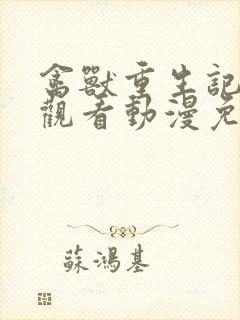 禽獸重生記
觀看動漫免
蘇鴻基